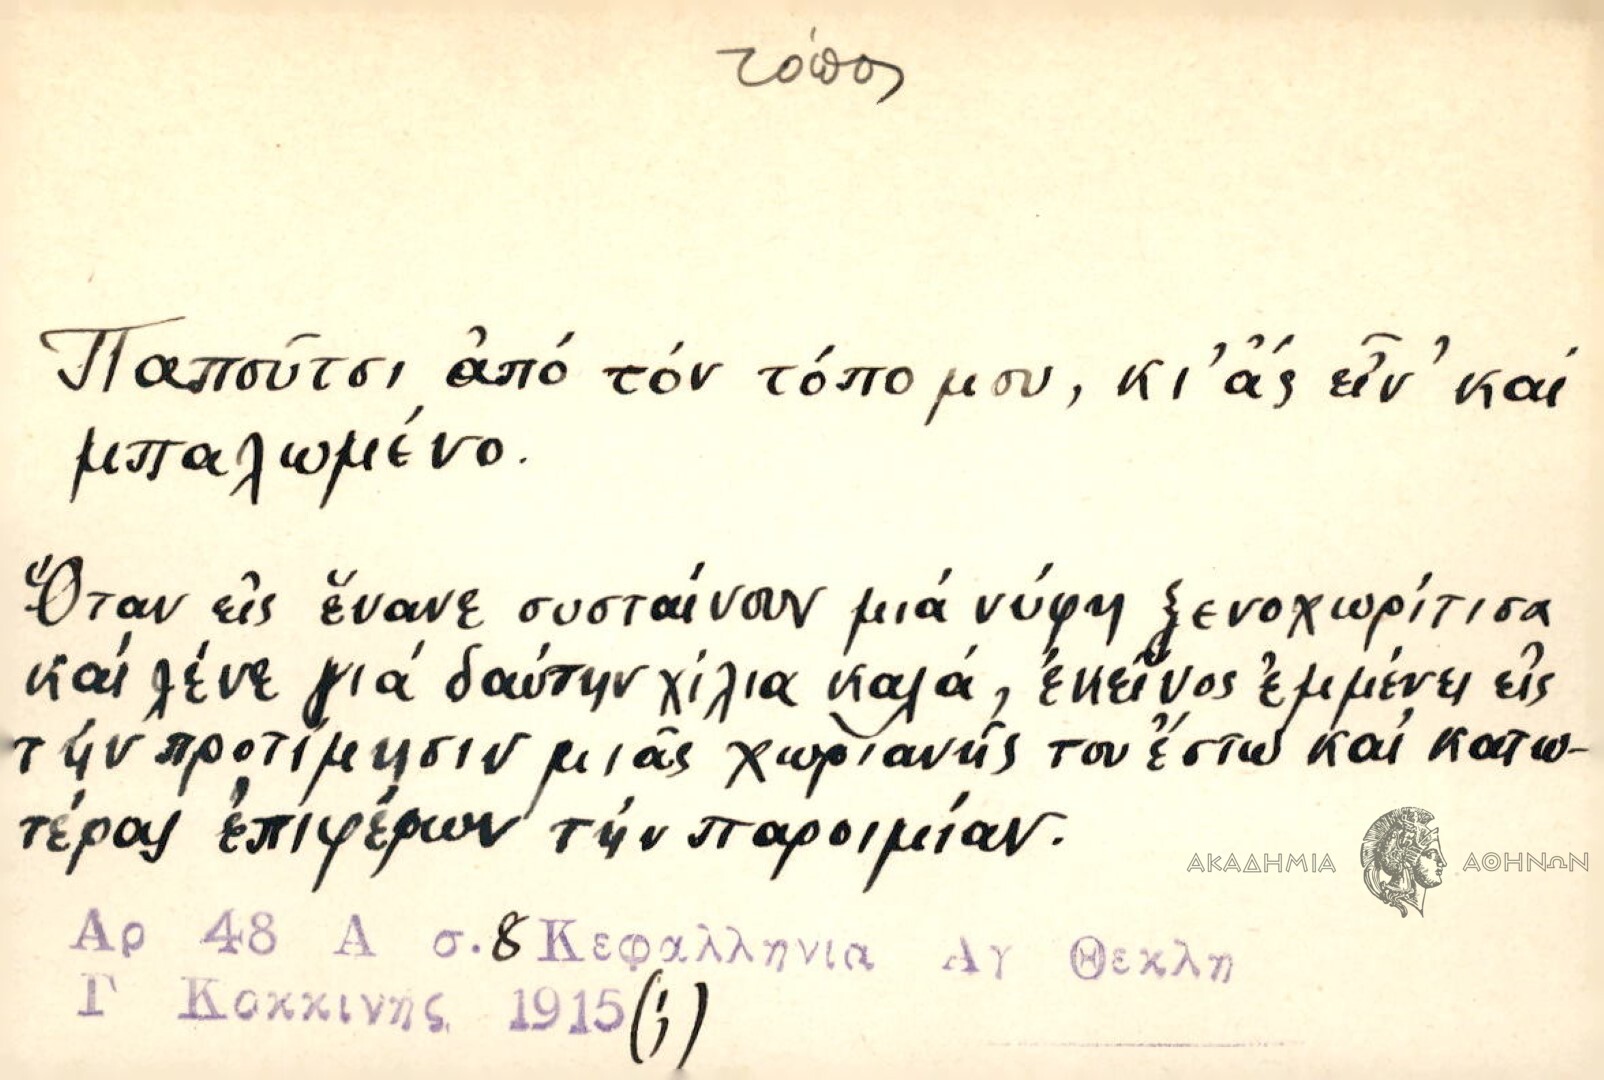 τόπος
Παπούτσι ἀπό τόν τόπο μου, κι' ἄς εἶν' καί
μπαλωμένο.
Ὅταν εἰς ἔνανε συσταίνουν μιά νύφη ξενοχωρίτισα
καί λένε γιά δαύτην χίλια καλά, ἐκεῖνος ἐμμένει εἰς
τήν προτίμησιν μιᾶς χωριανῆς του ἔστω καί κατω-
τέρας ἐπιφέρων τήν παροιμίαν.
ΑΚΑΔΗΜΙΑ ΑΘΗΝΩΝ
Αρ 48 Α σ. 8 Κεφαλληνια Αγ Θεκλη
Γ Κοκκινης 1915 (;)